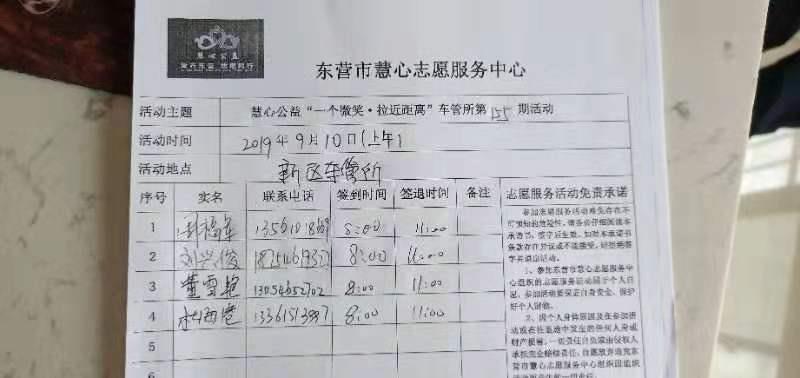 慧心公益
东营市慧心志愿服务中心
活动主题 慧心公益“一个微笑·拉近距离”车管所第155期活动
活动时间 2019年9月10日(上午)
活动地点 新区车管所
序号 实名 联系电话 签到时间 签退时间 备注 志愿服务活动免责承诺
1 8:00 11:00
2 刘兴俊 8:00 11:00
3 董雪艳 13054652702 8:00 11:00
4 8:00 11:00
5
6
参加志愿服务活动难免存在不
可预知的危险性，请务必仔细阅读本
承诺书，签字后生效。如对本承诺书
条款存在异议或不能接受，
字并退出活动。
1、参加东营市慧心志愿服务中
心组织的志愿服务活动属于个人自
愿，参加活动要保证自身安全、保护
好个人财物。
2、因个人身体原因及在参加活
动或在往返途中发生的任何人身或
财产损害，一切责任自负或由侵权人
承担完全赔偿责任，自愿放弃追究东
营市慧心志愿服务中心组织因组织